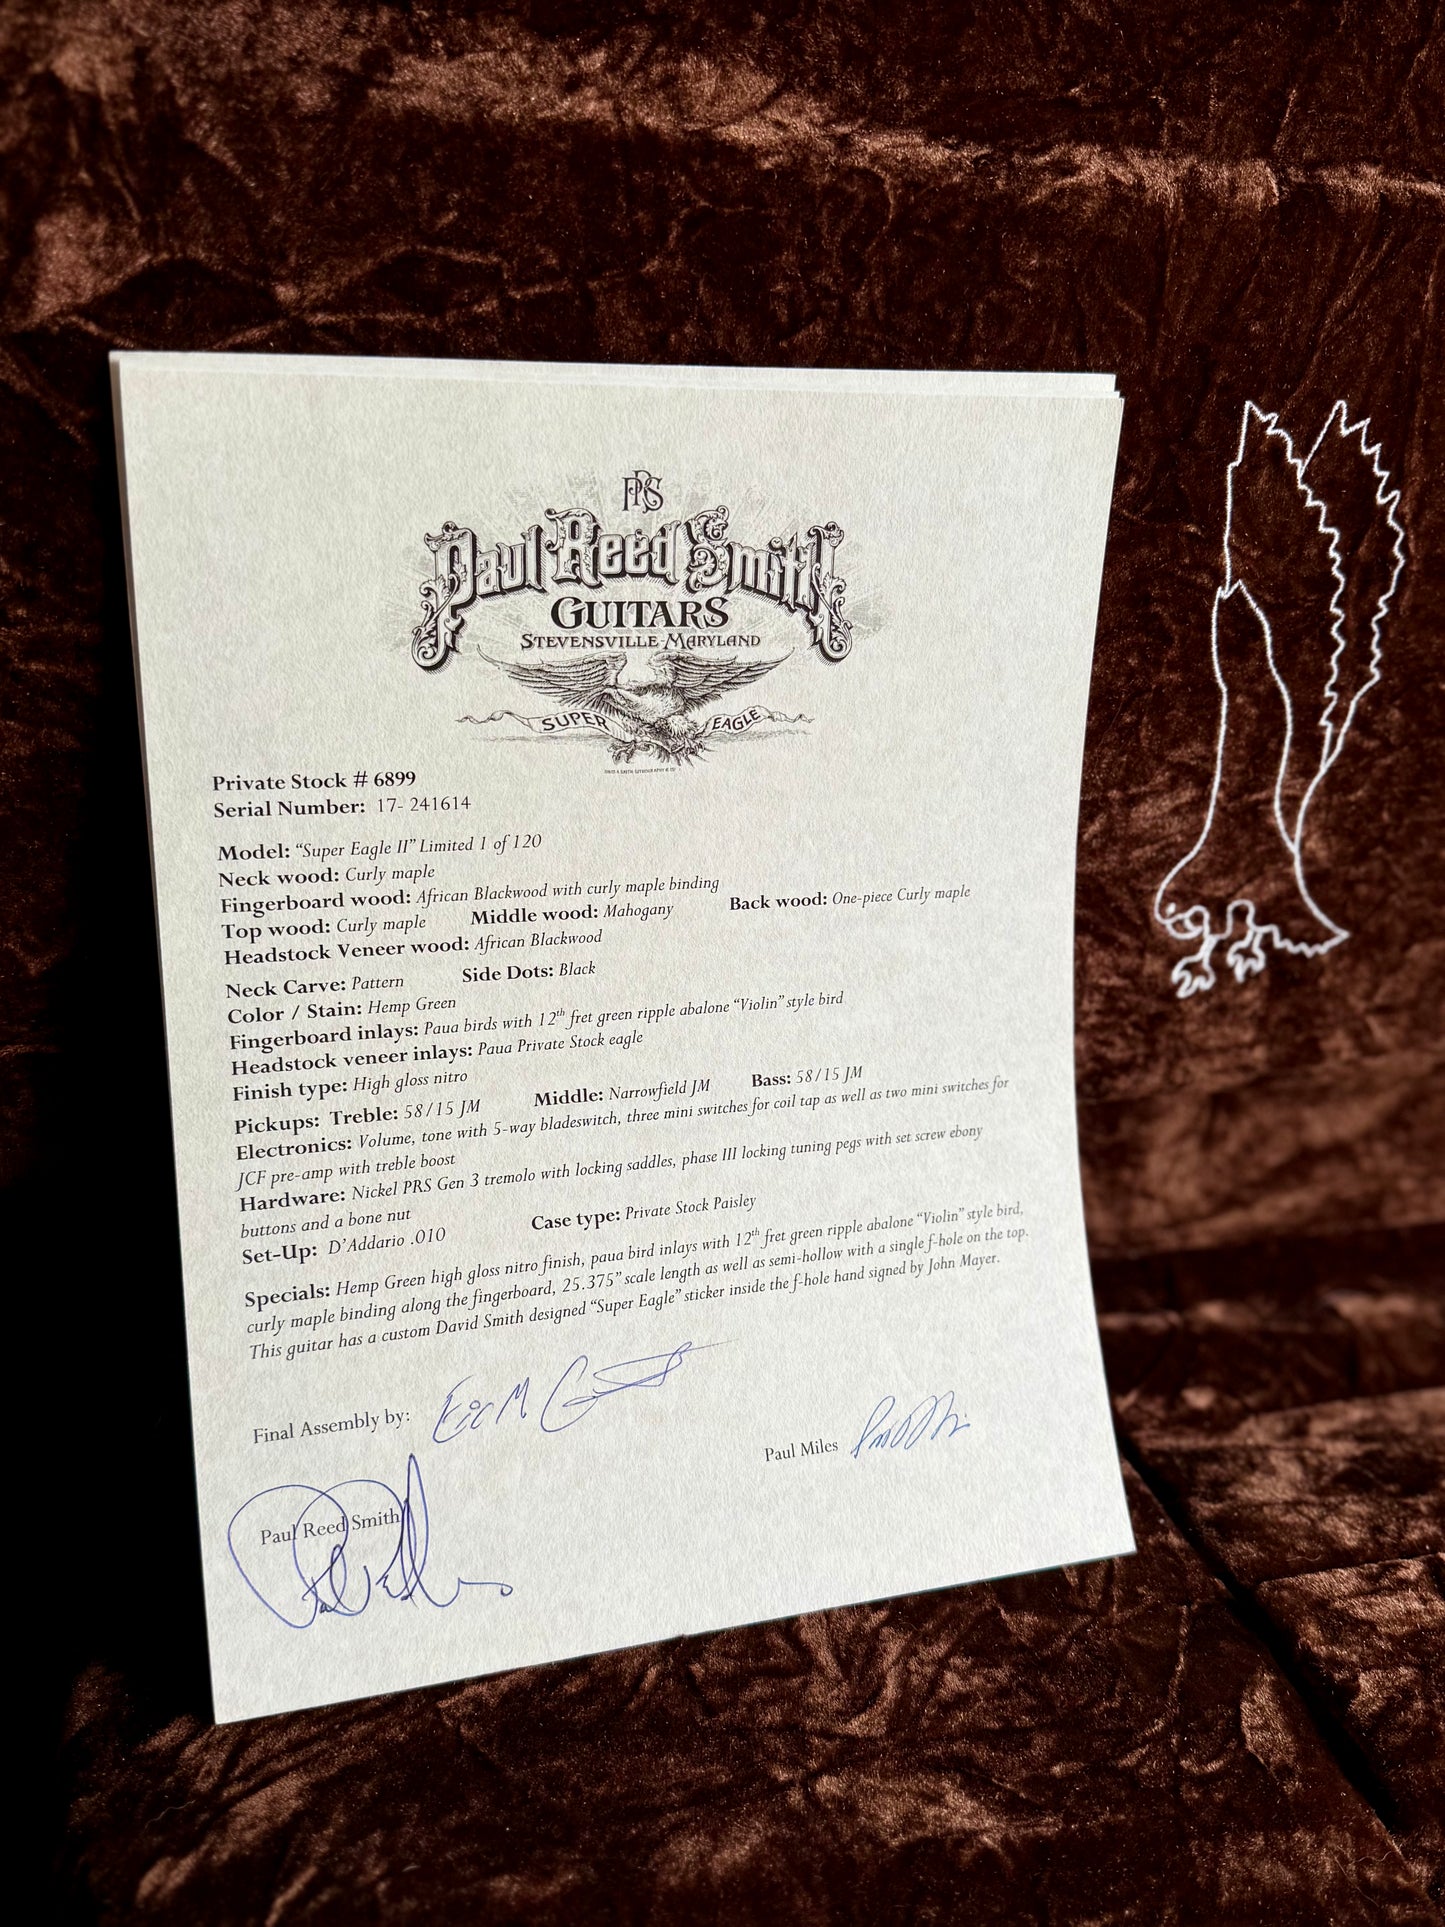 PRS
Paul Reed Smith
GUITARS
STEVENSVILLE-MARYLAND
SUPER EAGLE
Private Stock # 6899
Serial Number: 17- 241614
Model: “Super Eagle II” Limited 1 of 120
Neck wood: Curly maple
Fingerboard wood: African Blackwood with curly maple binding
Top wood: Curly maple Middle wood: Mahogany Back wood: One-piece Curly maple
Headstock Veneer wood: African Blackwood
Neck Carve: Pattern Side Dots: Black
Color / Stain: Hemp Green
Fingerboard inlays: Paua birds with 12th fret green ripple abalone “Violin” style bird
Headstock veneer inlays: Paua Private Stock eagle
Finish type: High gloss nitro
Pickups: Treble: 58/15 JM Middle: Narrowfield JM Bass: 58/15 JM
Electronics: Volume, tone with 5-way bladeswitch, three mini switches for coil tap as well as two mini switches for
JCF pre-amp with treble boost
Hardware: Nickel PRS Gen 3 tremolo with locking saddles, phase III locking tuning pegs with set screw ebony
buttons and a bone nut
Set-Up: D’Addario .010 Case type: Private Stock Paisley
Specials: Hemp Green high gloss nitro finish, paua bird inlays with 12th fret green ripple abalone “Violin” style bird,
curly maple binding along the fingerboard, 25.375” scale length as well as semi-hollow with a single f-hole on the top.
This guitar has a custom David Smith designed “Super Eagle” sticker inside the f-hole hand signed by John Mayer.
Final Assembly by: Eric M
Paul Miles
Paul Reed Smith